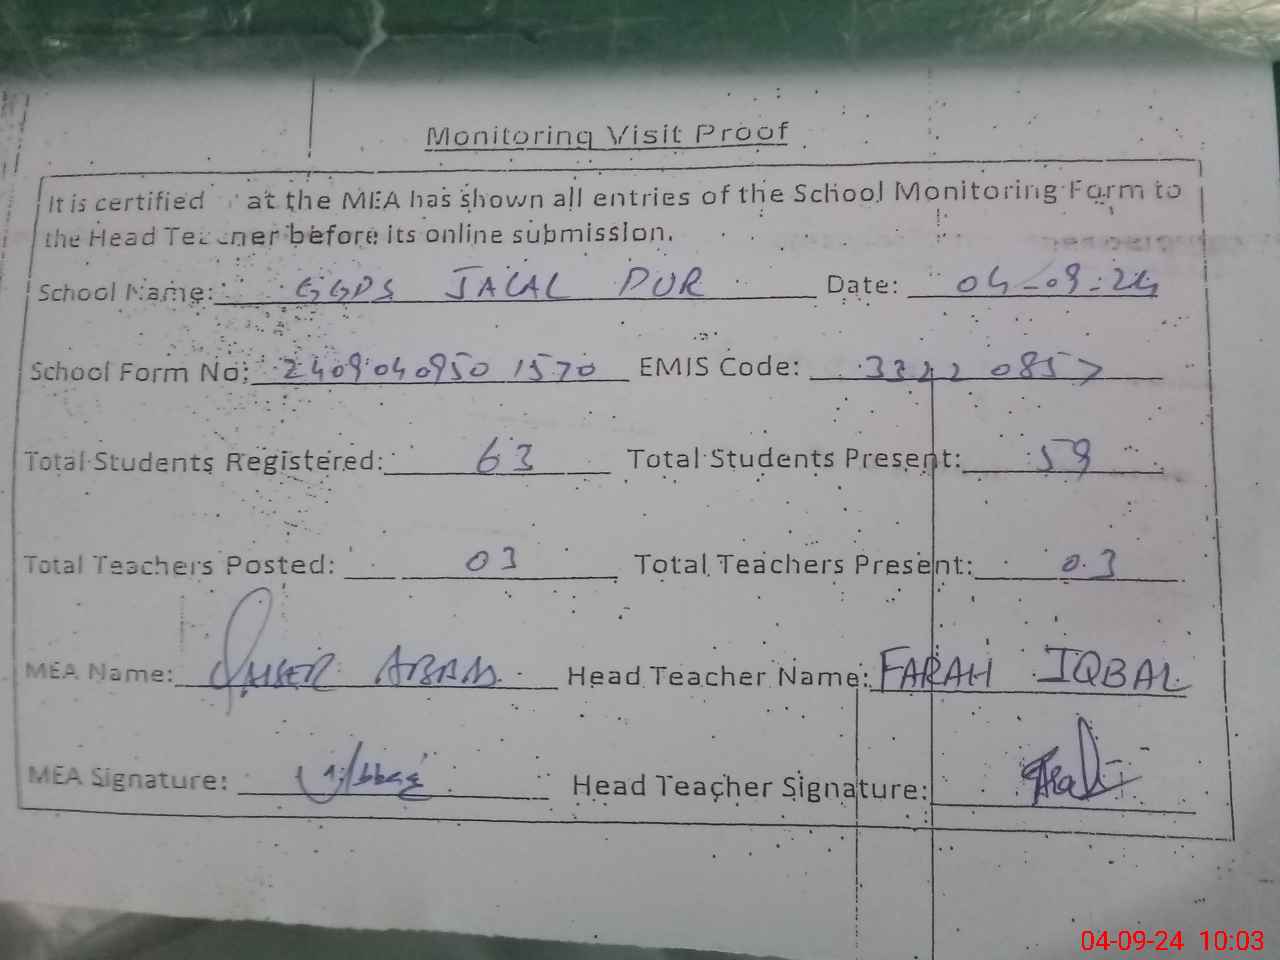 Monitoring Visit Proof
It is certified at the MEA has shown all entries of the School Monitoring Form to
the Head Teacher before its online submission.
School Name: GGPS JALAL PUR Date: 04-09-24
School Form No: 2409040950 1570 EMIS Code: 33220857
Total Students Registered: 63 Total Students Present: 59
Total Teachers Posted: 03 Total Teachers Present: 03
MEA Name: Head Teacher Name: FARAH IQBAL
MEA Signature: Head Teacher Signature:
04-09-24 10:03